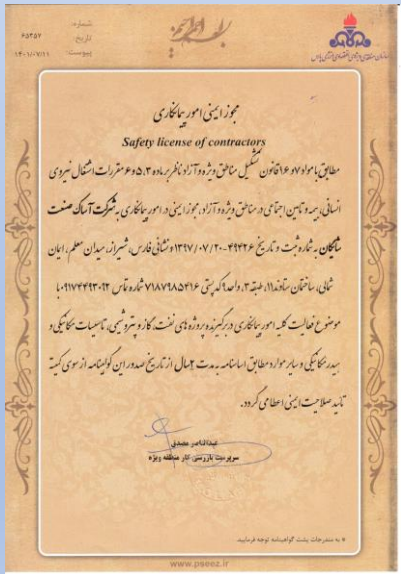 بسم الله الرحمن الرحیم
شماره:
۶۵۴۵۷
تاریخ:
۱۴۰۱/۰۷/۱۱
پیوست:
مجوز ایمنی امور پیمانکاری
Safety license of contractors
مطابق با مواد ۷ و ۱۶ قانون تشکیل مناطق ویژه و آزاد ناظر بر ماده ۳، ۵ و ۶ مقررات اشتغال نیروی
انسانی، بیمه و تامین اجتماعی در مناطق ویژه و آزاد، مجوز ایمنی در امور پیمانکاری به شرکت آساک صنعت
شایگان به شماره ثبت و تاریخ ۴۹۴۲۶-۱۳۹۷/۰۷/۲۰ و نشانی فارس، شیراز، میدان معلم، ایمان
شمالی، ساختمان ساوند۱۱، طبقه ۳، واحد۹ کد پستی ۷۱۸۷۹۸۵۴۱۶ شماره تماس ۰۹۱۷۴۴۹۳۰۹۲ با
موضوع فعالیت کلیه امور پیمانکاری در برگیرنده پروژه های نفت، گاز و پتروشیمی، تاسیسات مکانیکی و
هیدرمکانیکی و سایر موارد مطابق اساسنامه به مدت ۲سال از تاریخ صدور این گواهینامه از سوی کمیته
تائید صلاحیت ایمنی اعطا می گردد.
عبدالناصر مصدق
سرپرست بازرسی کار منطقه ویژه
* به مندرجات پشت گواهینامه توجه فرمایید.
www.pseez.ir